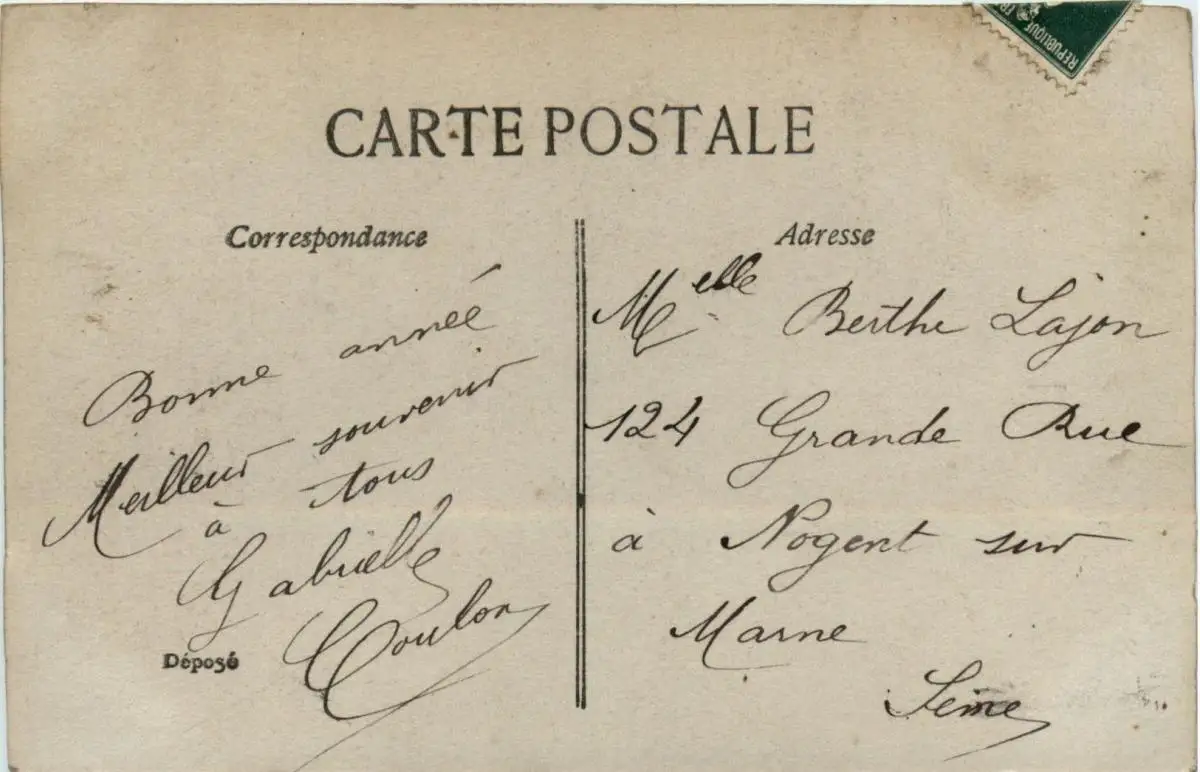 RÉPUBLIQUE FR
CARTE POSTALE
Correspondance
Bonne année
Meilleur souvenir
à tous
Gabrielle
Coulon
Déposé
Adresse
Melle Berthe Lajon
124 Grande Rue
à Nogent sur
Marne
Seine